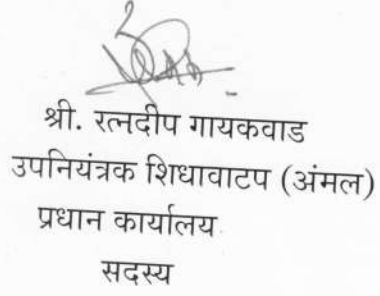 श्री. रत्नदीप गायकवाड
उपनियंत्रक शिधावाटप (अंमल)
प्रधान कार्यालय
सदस्य